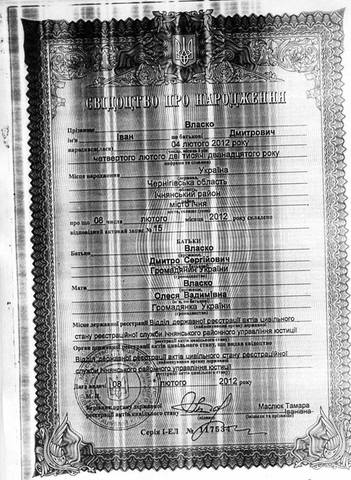 СВІДОЦТВО ПРО НАРОДЖЕННЯ
Прізвище Власко
ім'я Іван по батькові Дмитрович
04 лютого 2012 року
четвертого лютого дві тисячі дванадцятого року
Місце народження Україна
Чернігівська область
Ічнянський район
місто Ічня
про що 08 числа лютого місяця 2012 року складено
відповідний актовий запис № 15
БАТЬКИ
Батько Власко
Дмитро Сергійович
Громадянин України
Мати Власко
Олеся Вадимівна
Громадянка України
Місце державної реєстрації Відділ державної реєстрації актів цивільного
стану реєстраційної служби Ічнянського районного управління юстиції
Відділ державної реєстрації актів цивільного стану реєстраційної
служби Ічнянського районного управління юстиції
Дата видачі 08 лютого 2012 року
М. П.
Керівник органу державної
реєстрації актів цивільного стану
Маслюк Тамара
Іванівна
Серія І-ЕЛ №